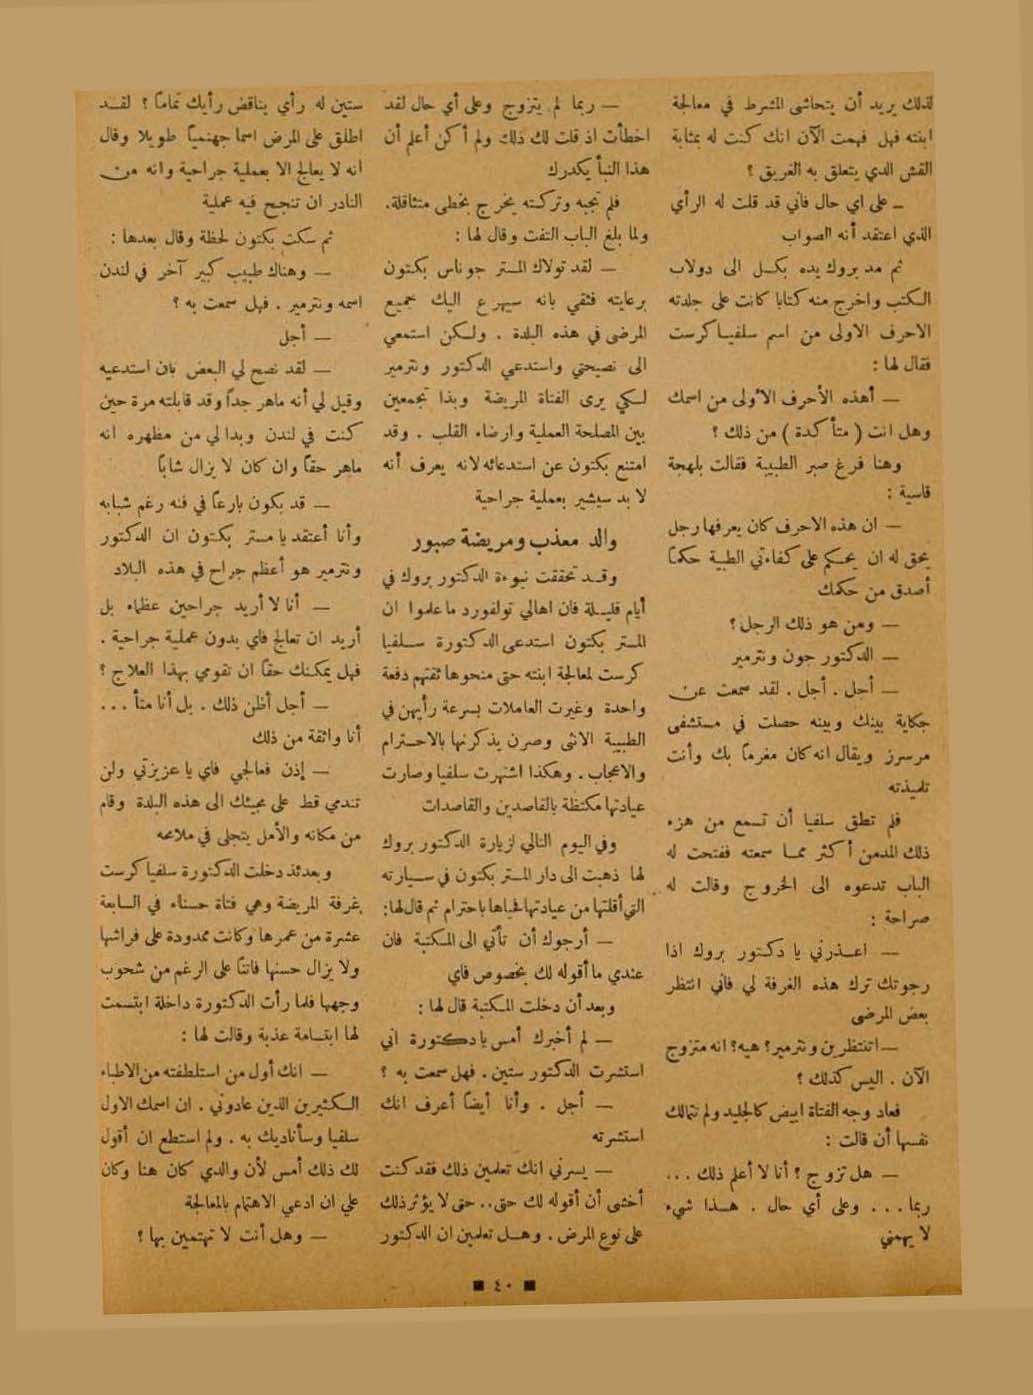 لذلك يريد أن يتحاشى المشرط في معالجة
ابنته فهل فهمت الآن انك كنت له بمثابة
القش الذي يتعلق به الغريق ؟
ـ على اي حال فاني قد قلت له الرأي
الذي اعتقد أنه الصواب
ثم مد بروك يده بكل الى دولاب
الكتب واخرج منه كتابا كانت على جلدته
الاحرف الاولى من اسم سلفيا كرست
فقال لها :
— أهذه الأحرف الأولى من اسمك
وهل انت ( متأكدة ) من ذلك ؟
وهنا فرغ صبر الطبيبة فقالت بلهجة
قاسية :
— ان هذه الاحرف كان يعرفها رجل
يحق له ان يحكم على كفاءتي الطبية حكماً
أصدق من حكمك
— ومن هو ذلك الرجل ؟
— الدكتور جون ونترمير
— أجل . أجل . لقد سمعت عن
حكاية بينك وبينه حصلت في مستشفى
مرسرز ويقال انه كان مغرماً بك وأنت
تلميذته
فلم تطق سلفيا أن تسمع من هزء
ذلك المدمن أكثر مما سمعته ففتحت له
الباب تدعوه الى الخروج وقالت له
صراحة :
— اعذرني يا دكتور بروك اذا
رجوتك ترك هذه الغرفة لي فاني انتظر
بعض المرضى
— اتنتظرين ونترمير؟ هيه؟ انه متزوج
الآن . اليس كذلك ؟
فعاد وجه الفتاة ابيض كالجليد ولم تتمالك
نفسها أن قالت :
— هل تزوج ؟ أنا لا أعلم ذلك ...
ربما ... وعلى أي حال . هذا شيء
لا يهمني
— ربما لم يتزوج وعلى أي حال لقد
اخطأت اذ قلت لك ذلك ولم أكن أعلم أن
هذا النبأ يكدرك
فلم تجبه وتركته يخرج بخطى متثاقلة.
ولما بلغ الباب التفت وقال لها :
— لقد تولاك المستر جوناس بكتون
برعايته فثقي بانه سيهرع اليك جميع
المرضى في هذه البلدة . ولكن استمعي
الى نصيحتي واستدعي الدكتور ونترمير
لكي يرى الفتاة المريضة وبذا تجمعين
بين المصلحة العملية وارضاء القلب . وقد
امتنع بكتون عن استدعائه لانه يعرف أنه
لا بد سيشير بعملية جراحية
والد معذب ومريضة صبور
وقد تحققت نبوءة الدكتور بروك في
أيام قليلة فان اهالي تولفورد ما علموا ان
المستر بكتون استدعى الدكتورة سلفيا
كرست لمعالجة ابنته حتى منحوها ثقتهم دفعة
واحدة وغيرت العاملات بسرعة رأيهن في
الطبيبة الانثى وصرن يذكرنها بالاحترام
والاعجاب . وهكذا اشتهرت سلفيا وصارت
عيادتها مكتظة بالقاصدين والقاصدات
وفي اليوم التالي لزيارة الدكتور بروك
لها ذهبت الى دار المستر بكتون في سيارته
التي أقلتها من عيادتها فحياها باحترام ثم قال لها:
— أرجوك أن تأتي الى المكتبة فان
عندي ما أقوله لك بخصوص فاي
وبعد أن دخلت المكتبة قال لها :
— لم أخبرك أمس يا دكتورة اني
استشرت الدكتور ستين . فهل سمعت به ؟
— أجل . وأنا أيضاً أعرف انك
استشرته
— يسرني انك تعلمين ذلك فقد كنت
أخشى أن أقوله لك حتى .. حتى لا يؤثر ذلك
على نوع المرض . وهل تعلمين ان الدكتور
ستين له رأي يناقض رأيك تماماً ؟ لقد
اطلق على المرض اسما جهنمياً طويلا وقال
انه لا يعالج الا بعملية جراحية وانه من
النادر ان تنجح فيه عملية
ثم سكت بكتون لحظة وقال بعدها :
— وهناك طبيب كبير آخر في لندن
اسمه ونترمير . فهل سمعت به ؟
— أجل
— لقد نصح لي البعض بان استدعيه
وقيل لي أنه ماهر جداً وقد قابلته مرة حين
كنت في لندن وبدا لي من مظهره انه
ماهر حقاً وان كان لا يزال شاباً
— قد يكون بارعاً في فنه رغم شبابه
وأنا أعتقد يا مستر بكتون ان الدكتور
ونترمير هو أعظم جراح في هذه البلاد
— أنا لا أريد جراحين عظماء بل
أريد ان تعالج فاي بدون عملية جراحية .
فهل يمكنك حقاً ان تقومي بهذا العلاج ؟
— أجل أظن ذلك . بل أنا متأ ...
أنا واثقة من ذلك
— إذن فعالجي فاي يا عزيزتي ولن
تندمي قط على مجيئك الى هذه البلدة وقام
من مكانه والأمل يتجلى في ملامحه
وبعدئذ دخلت الدكتورة سلفيا كرست
غرفة المريضة وهي فتاة حسناء في السابعة
عشرة من عمرها وكانت ممدودة على فراشها
ولا يزال حسنها فاتناً على الرغم من شحوب
وجهها فلما رأت الدكتورة داخلة ابتسمت
لها ابتسامة عذبة وقالت لها :
— انك أول من استلطفته من الاطباء
الكثيرين الذين عادوني . ان اسمك الاول
سلفيا وسأناديك به . ولم استطع ان أقول
لك ذلك أمس لأن والدي كان هنا وكان
علي ان ادعي الاهتمام بالمعالجة
— وهل أنت لا تهتمين بها ؟
■ ٤٠ ■